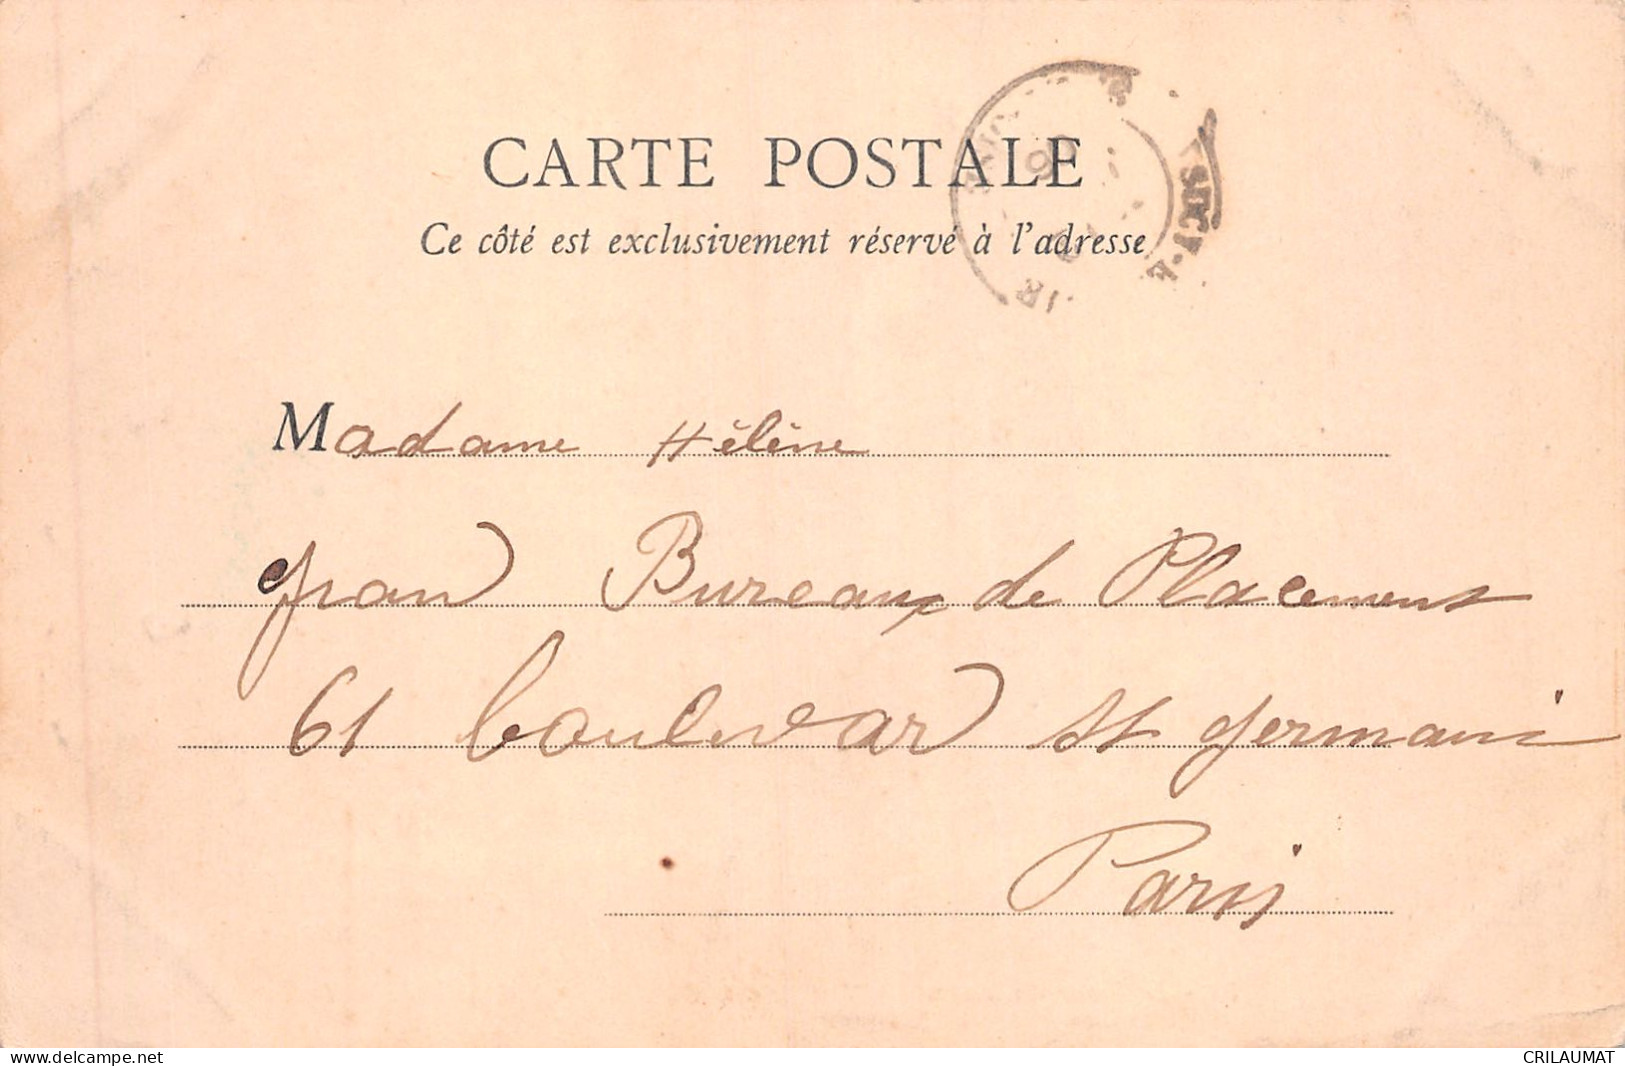 CARTE POSTALE
Ce côté est exclusivement réservé à l'adresse
Madame Hélène
gran Bureaux de Placement
61 boulevar St germain
Paris
delcampe.net
CRILAUMAT